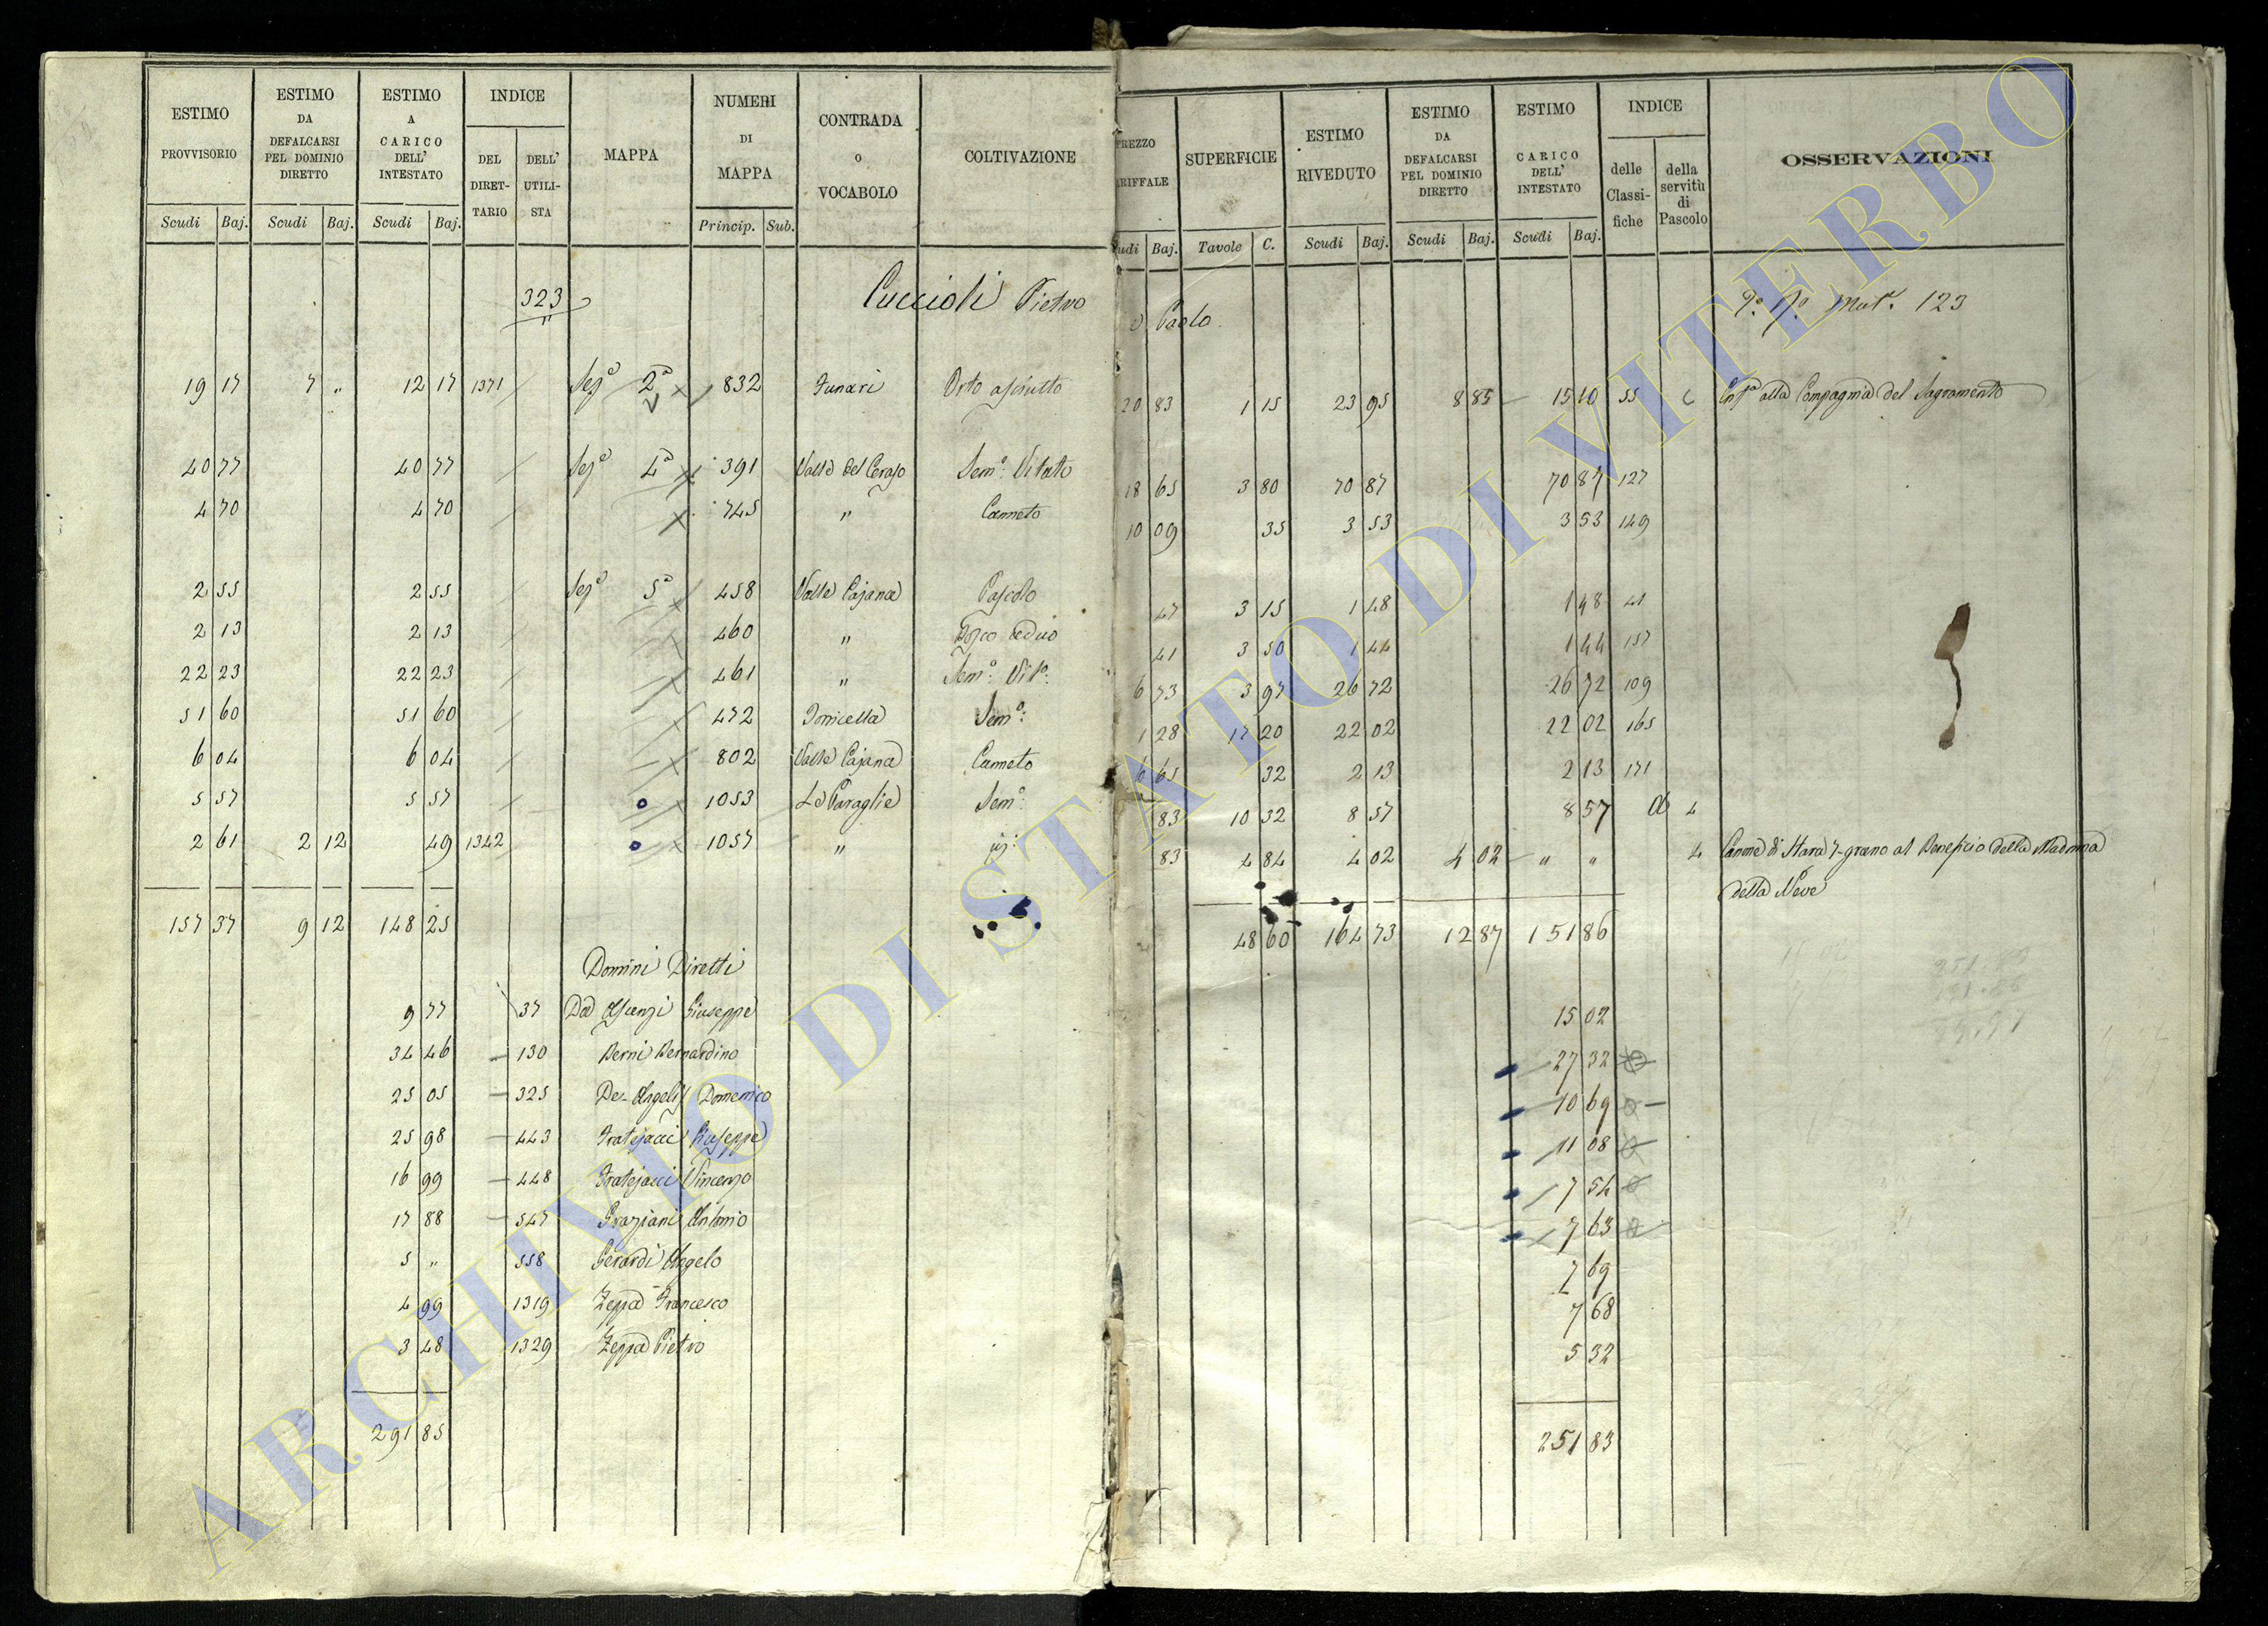 ESTIMO PROVVISORIO | ESTIMO DA DEFALCARSI PEL DOMINIO DIRETTO | ESTIMO A CARICO DELL' INTESTATO | INDICE | MAPPA | NUMERI DI MAPPA | CONTRADA O VOCABOLO | COLTIVAZIONE | PREZZO TARIFFALE | SUPERFICIE | ESTIMO RIVEDUTO | ESTIMO DA DEFALCARSI PEL DOMINIO DIRETTO | ESTIMO CARICO DELL' INTESTATO | INDICE | OSSERVAZIONI
DEL DIRETTARIO | DELL' UTILISTA | delle Classifiche | della servitù di Pascolo
Scudi | Baj. | Scudi | Baj. | Scudi | Baj. | Princip. | Sub. | Scudi | Baj. | Tavole | C. | Scudi | Baj. | Scudi | Baj. | Scudi | Baj.
323 Cuccioli Pietro Paolo Mat. 123
19 17 7 " 12 17 1371 Sez 2ª 832 Funari Orto asciutto 20 83 1 15 23 95 8 85 15 10 55 alla Compagnia del Sagramento
40 77 40 77 Sez 4ª 391 Valle del Ceraso Sem.º Vitato 18 65 3 80 70 87 70 87 127
4 70 4 70 745 " Canneto 10 09 35 3 53 3 53 149
2 55 2 55 Sez 5ª 458 Valle Cajana Pascolo 47 3 15 1 48 1 48 41
2 13 2 13 460 " Bosco ceduo 41 3 50 1 44 1 44 157
22 23 22 23 461 " Sem.º Vit.º 6 73 3 97 26 72 26 72 109
51 60 51 60 472 Sem.º 1 28 17 20 22 02 22 02 165
6 04 6 04 802 Valle Cajana Canneto 6 65 32 2 13 2 13 171
5 57 5 57 1053 Sem.º 83 10 32 8 57 8 57 4
2 61 2 12 49 1342 1057 " 83 4 84 4 02 4 02 " " 4 Canone di Stara 7 grano al Beneficio della Madonna
della Neve
157 37 9 12 148 25 48 60 164 73 12 87 151 86
Domini Diretti
9 77 37 Da Ascenzi Giuseppe 15 02
34 46 130 Berni Bernardino 27 32
25 05 325 De-Angelis Domenico 10 69
25 98 443 Fratejacci Giuseppe 11 08
16 99 448 Fratejacci Vincenzo 7 54
17 88 547 Graziani Antonio 7 63
5 " 558 Gerardi Angelo 7 69
4 99 1319 Zeppa Francesco 7 68
3 48 1329 Zeppa Pietro 5 32
291 85 251 83
ARCHIVIO DI STATO DI VITERBO